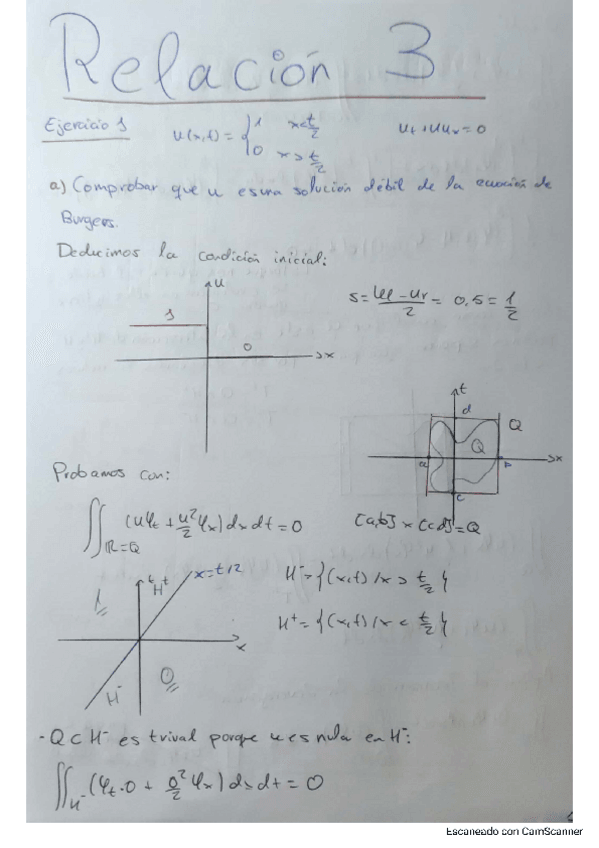 Relación 3
Ejercicio 1 u(x,t) = { 1 x<t/2 u_t + u u_x = 0
0 x > t/2
a) Comprobar que u es una solución débil de la ecuación de
Burgers.
Deducimos la condición inicial:
u
1
0
x
s = (u_l - u_r)/2 = 0,5 = 1/2
t
d
Q
Q
a
b
x
c
Probamos con:
∬_{R=Q} (uφ_t + u²/2 φ_x) dx dt = 0 [a,b] x [c,d] = Q
t
H⁺
x = t/2
H⁻ = {(x,t) / x > t/2}
1
H⁺ = {(x,t) / x < t/2}
x
0
H⁻
- Q ⊂ H⁻ es trival porque u es nula en H⁻:
∬_{H⁻} (φ_t·0 + 0²/2 φ_x) dx dt = 0
Escaneado con CamScanner